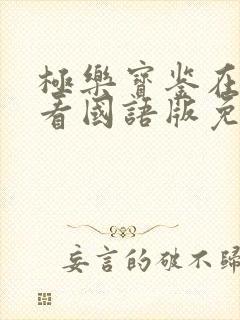 極樂寶鉴在
看國語版免
妄言的破不歸